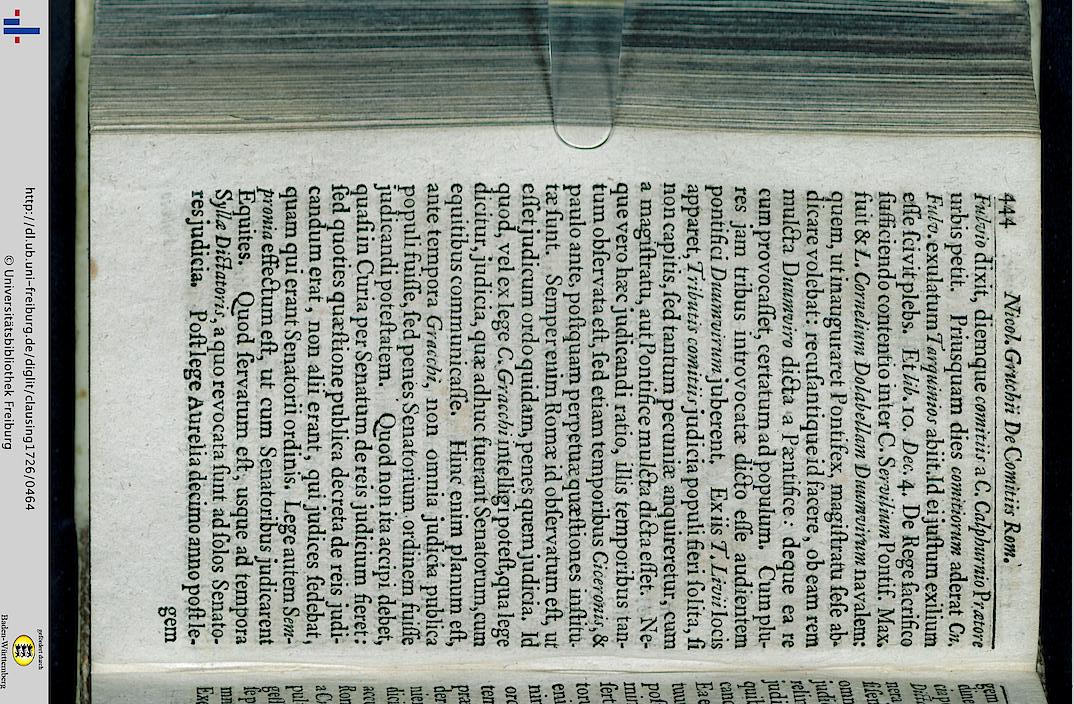 444 Nicol. Gruchii De Comitiis Rom.
Fulvio dixit, diemque comitiis a C. Calphurnio Prætore
urbis petit. Priusquam dies comitiorum aderat Cn.
Fulv. exulatum Tarquinios abiit. Id ei justum exilium
esse scivit plebs. Et lib. 10. Dec. 4. De Rege sacrifio
sufficiendo contentio inter C. Servilium Pontif. Max.
fuit & L. Cornelium Dolabellam Duumvirum navalem:
quem, ut inauguraret Pontifex, magistratu sese ab-
dicare volebat: recusantique id facere, ob eam rem
mulcta Duumviro dicta a Pæntifice: deque ea re
cum provocasset, certatum ad populum. Cum plu-
res jam tribus introvocatæ dicto esse audientem
pontifici Duumvirum juberent. Ex iis T. Livii locis
apparet, Tributis comitiis judicia populi fieri solita, si
non capitis, sed tantum pecuniæ anquireretur, cum
a magistratu, aut Pontifice mulcta dicta esset. Ne-
que vero hæc judicandi ratio, illis temporibus tan-
tum observata est, sed etiam temporibus Ciceronis, &
paulo ante, postquam perpetuæ quæstiones institu
tæ sunt. Semper enim Romæ id observatum est, ut
esset judicum ordo quidam, penes quem judicia. Id
quod, vel ex lege C. Gracchi intelligi potest, qua lege
dicitur, judicia, quæ adhuc fuerant Senatorum, cum
equitibus communicasse. Hinc enim planum est,
ante tempora Gracchi, non omnia judicia publica
populi fuisse, sed penes Senatorium ordinem fuisse
judicandi potestatem. Quod non ita accipi debet,
quasi in Curia per Senatum de reis judicium fieret:
sed quoties quæstione publica decreta de reis judi-
candum erat, non alii erant, qui judices sedebat,
quam qui erant Senatorii ordinis. Lege autem Sem-
pronia effectum est, ut cum Senatoribus judicarent
Equites. Quod servatum est, usque ad tempora
Syllæ Dictatoris, a quo revocata sunt ad solos Senato-
res judicia. Post lege Aurelia decimo anno post le-
gem
http://dl.ub.uni-freiburg.de/diglit/clausing1726/0464
© Universitätsbibliothek Freiburg
gefördert durch
Baden-Württemberg